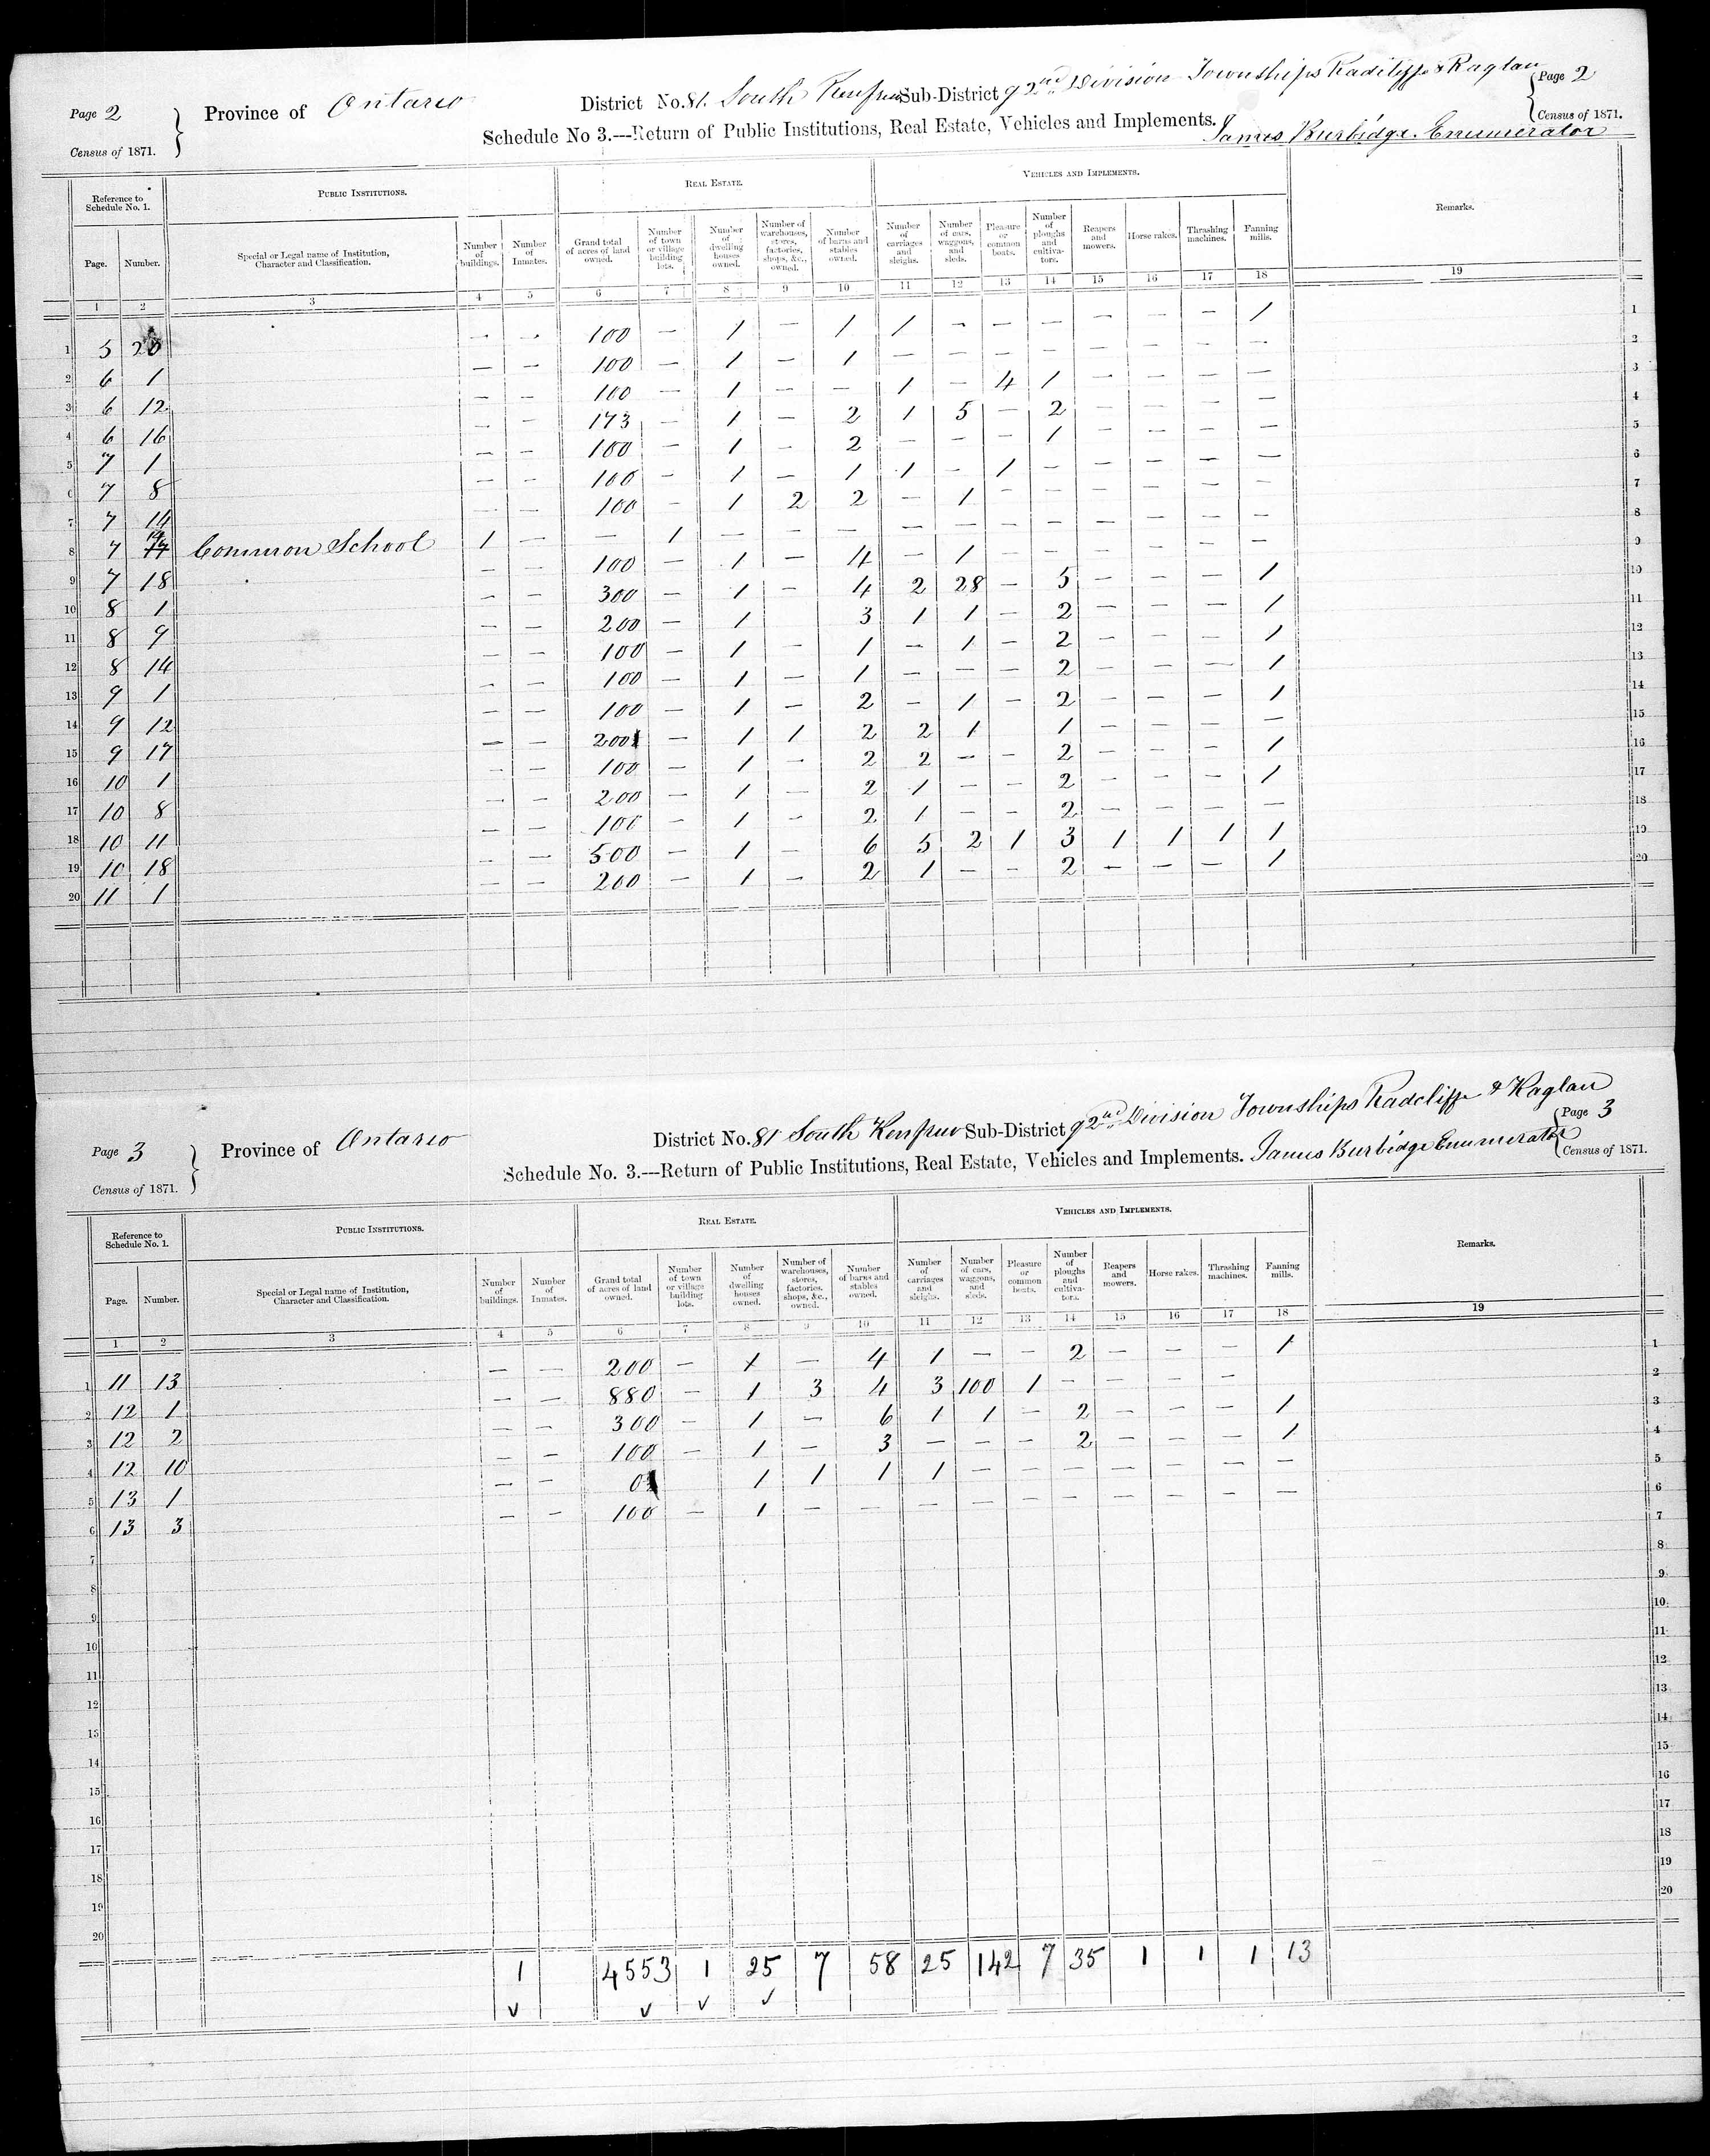 Page 2
Census of 1871.
Province of Ontario
District No. 81. South Renfrew Sub-District g 2nd Division Townships Radcliffe & Raglan
Page 2
Census of 1871.
Schedule No 3.---Return of Public Institutions, Real Estate, Vehicles and Implements.
James Burbidge. Enumerator
Reference to Schedule No. 1.
PUBLIC INSTITUTIONS.
REAL ESTATE.
VEHICLES AND IMPLEMENTS.
Remarks.
Page. Number. Special or Legal name of Institution, Character and Classification. Number of buildings. Number of Inmates. Grand total of acres of land owned. Number of town or village building lots. Number of dwelling houses owned. Number of warehouses, stores, factories, shops, &c., owned. Number of barns and stables owned. Number of carriages and sleighs. Number of cars, waggons, and sleds. Pleasure or common boats. Number of ploughs and cultivators. Reapers and mowers. Horse rakes. Thrashing machines. Fanning mills.
1 2 3 4 5 6 7 8 9 10 11 12 13 14 15 16 17 18 19
1 5 20 — — 100 — 1 — 1 1 — — — — — — 1 1
2 6 1 — — 100 — 1 — 1 — — — — — — — — 2
3 6 12 — — 100 — 1 — — 1 — 4 1 — — — — 3
4 6 16 — — 173 — 1 — 2 1 5 — 2 — — — — 4
5 7 1 — — 100 — 1 — 2 — — — 1 — — — — 5
6 7 8 — — 100 — 1 — 1 1 — 1 — — — — — 6
7 7 14 — — 100 — 1 2 2 — 1 — — — — — — 7
8 7 17 Common School 1 — — 1 — — — — — — — — — — — 8
9 7 18 — — 100 — 1 — 4 — 1 — — — — — — 9
10 8 1 — — 300 — 1 — 4 2 28 — 5 — — — 1 10
11 8 9 — — 200 — 1 3 1 1 — 2 — — — 1 11
12 8 14 — — 100 — 1 — 1 — 1 — 2 — — — 1 12
13 9 1 — — 100 — 1 — 1 — — — 2 — — — 1 13
14 9 12 — — 100 — 1 — 2 — 1 — 2 — — — 1 14
15 9 17 — — 200 — 1 1 2 2 1 1 — — — — 15
16 10 1 — — 100 — 1 — 2 2 — — 2 — — — 1 16
17 10 8 — — 200 — 1 — 2 1 — — 2 — — — 1 17
18 10 11 — — 100 — 1 — 2 1 — — 2 — — — — 18
19 10 18 — — 500 — 1 — 6 5 2 1 3 1 1 1 1 19
20 11 1 — — 200 — 1 — 2 1 — — 2 — — — 1 20
Page 3
Census of 1871.
Province of Ontario
District No. 81 South Renfrew Sub-District g 2nd Division Townships Radcliffe & Raglan
Page 3
Census of 1871.
Schedule No. 3.---Return of Public Institutions, Real Estate, Vehicles and Implements.
James Burbidge Enumerator
Reference to Schedule No. 1.
PUBLIC INSTITUTIONS.
REAL ESTATE.
VEHICLES AND IMPLEMENTS.
Remarks.
Page. Number. Special or Legal name of Institution, Character and Classification. Number of buildings. Number of Inmates. Grand total of acres of land owned. Number of town or village building lots. Number of dwelling houses owned. Number of warehouses, stores, factories. shops, &c., owned. Number of barns and stables owned. Number of carriages and sleighs. Number of cars, waggons, and sleds. Pleasure or common boats. Number of ploughs and cultivators. Reapers and mowers. Horse rakes. Thrashing machines. Fanning mills.
1 2 3 4 5 6 7 8 9 10 11 12 13 14 15 16 17 18 19
1 11 13 — — 200 — 1 — 4 1 — — 2 — — — 1 1
2 12 1 — — 880 — 1 3 4 3 100 1 — — — — 2
3 12 2 — — 300 — 1 — 6 1 1 — 2 — — — 1 3
4 12 10 — — 100 — 1 — 3 — — — 2 — — — 1 4
5 13 1 — — 0 1 1 1 1 — — — — — — — 5
6 13 3 — — 100 — 1 — — — — — — — — — — 6
7 7
8 8
9 9
10 10
11 11
12 12
13 13
14 14
15 15
16 16
17 17
18 18
19 19
20 20
1 4553 1 25 7 58 25 142 7 35 1 1 1 13